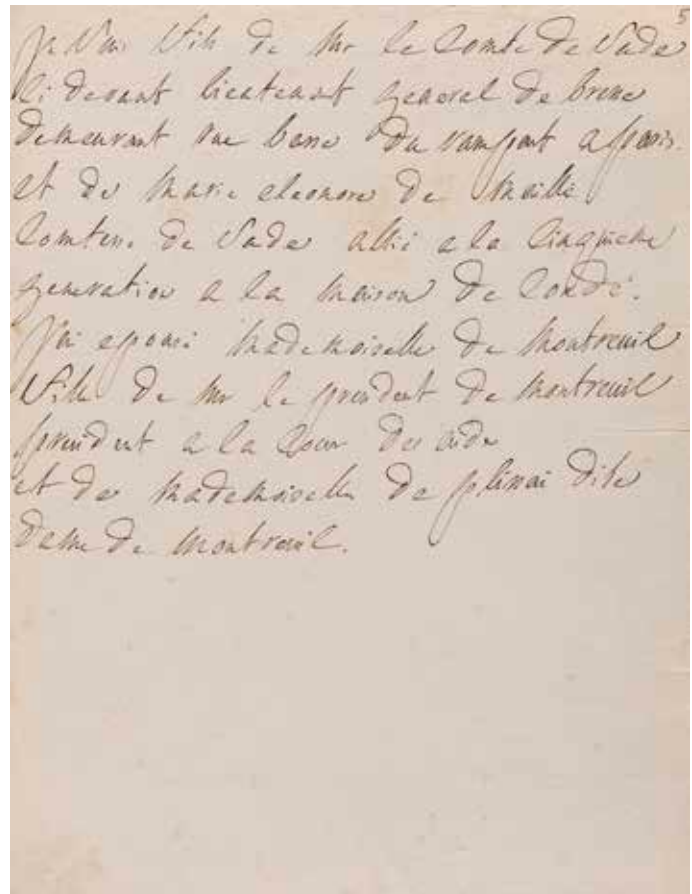 5
je suis fils de Mr le Comte de Sade
ci devant lieutenant general de bresse
demeurant rue basse du rampart a paris.
et de Marie eleonore de Maillé
Comtesse de Sade allié a la Cinquieme
generation a la Maison de Condé.
j'ai epousé Mademoiselle de Montreuil
fille de Mr le president de Montreuil
president a la Cour des aides
et de Mademoiselle de plissai dite
dame de Montreuil.